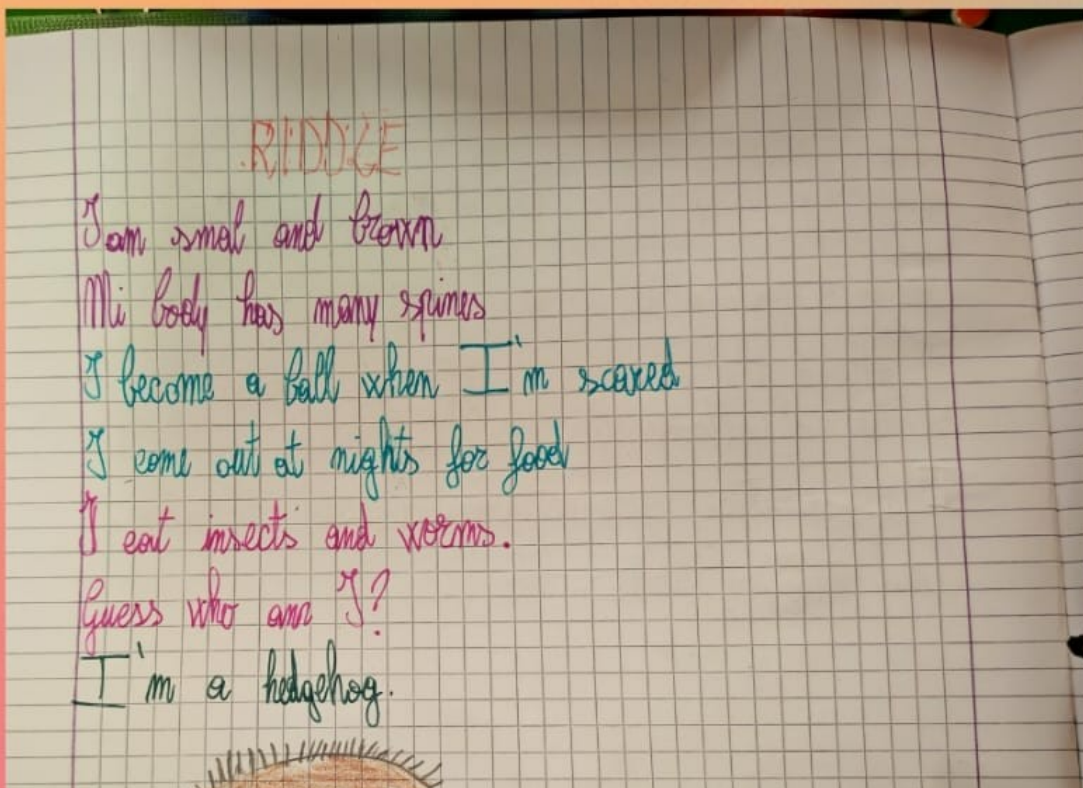 RIDDLE
I am smal and brown
Mi body has many spines
I become a ball when I'm scared
I come out at nights for food
I eat insects and worms.
Guess who am I?
I'm a hedgehog.